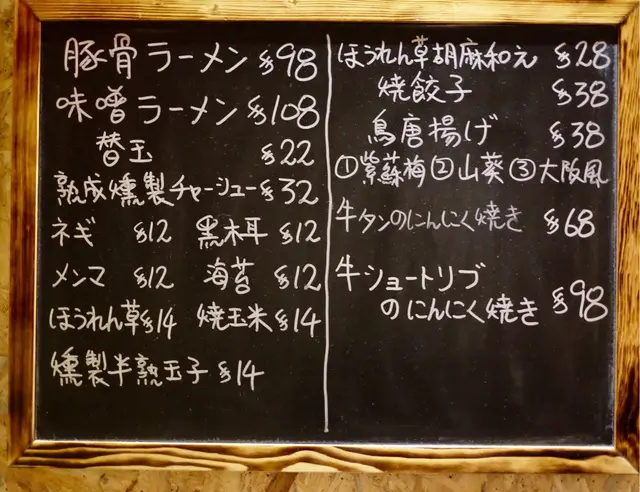 豚骨ラーメン $98
味噌ラーメン $108
替玉 $22
熟成燻製チャーシュー $32
ネギ $12 黒木耳 $12
メンマ $12 海苔 $12
ほうれん草 $14 焼玉米 $14
燻製半熟玉子 $14
ほうれん草胡麻和え $28
焼餃子 $38
鳥唐揚げ $38
①紫蘇梅②山葵③大阪風
牛タンのにんにく焼き $68
牛ショートリブ
のにんにく焼き $98